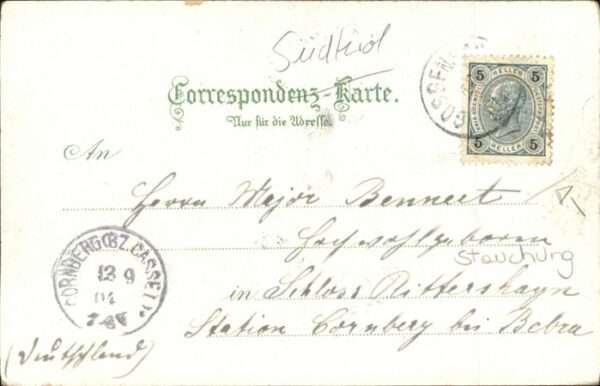 Südtirol
Correspondenz-Karte.
Nur für die Adresse.
5 HELLER 5
5 HELLER 5
GOSSENSASS
An
Herrn Major Bennert
Hochwohlgeboren
in Schloss Rittershayn
Station Cornberg bei Bebra
(Deutschland)
CORNBERG (BZ. CASSEL)
13 9
04
7-8V